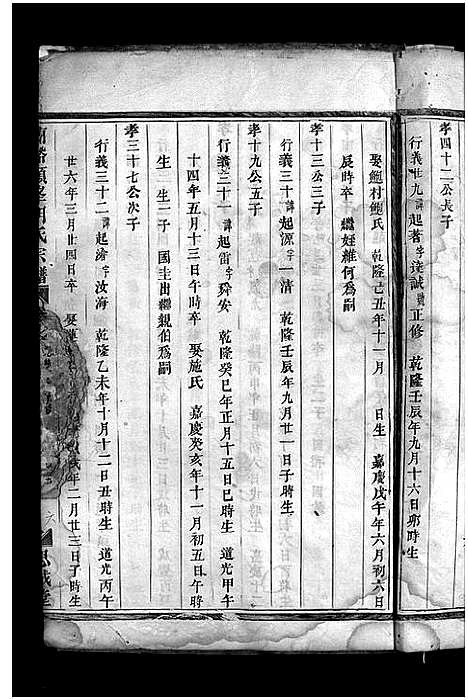 孝四十二公長子
行義廿九諱起著字達誠號正修 乾隆壬辰年九月十六日卯時生
娶鮑村鮑氏 乾隆己丑年十一月 日生 嘉慶戊午年六月初六日
辰時卒 繼姪維何爲嗣
孝十三公三子
行義三十諱起源字一清 乾隆壬辰年九月廿一日子時生
孝十九公五子
行義三十一諱起雷字舜安 乾隆癸巳年正月十五日巳時生 道光甲午
十四年五月十三日午時卒 娶施氏 嘉慶癸亥年十一月初五日午時
生 生二子 國圭出繼親伯爲嗣
孝三十七公次子
行義三十二諱起濬字汝海 乾隆乙未年十月十二日丑時生 道光丙午
廿六年三月廿四日卒 娶 氏 年二月廿三日子時生
氏宗譜
六
思成堂